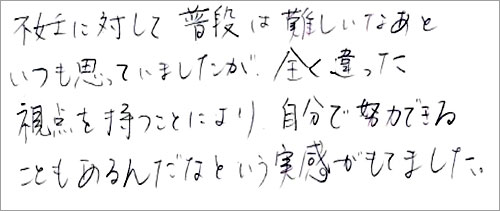 不妊に対して 普段は難しいなあと
いつも思っていましたが、全く違った
視点を持つことにより、自分で努力できる
こともあるんだなという実感がもてました。